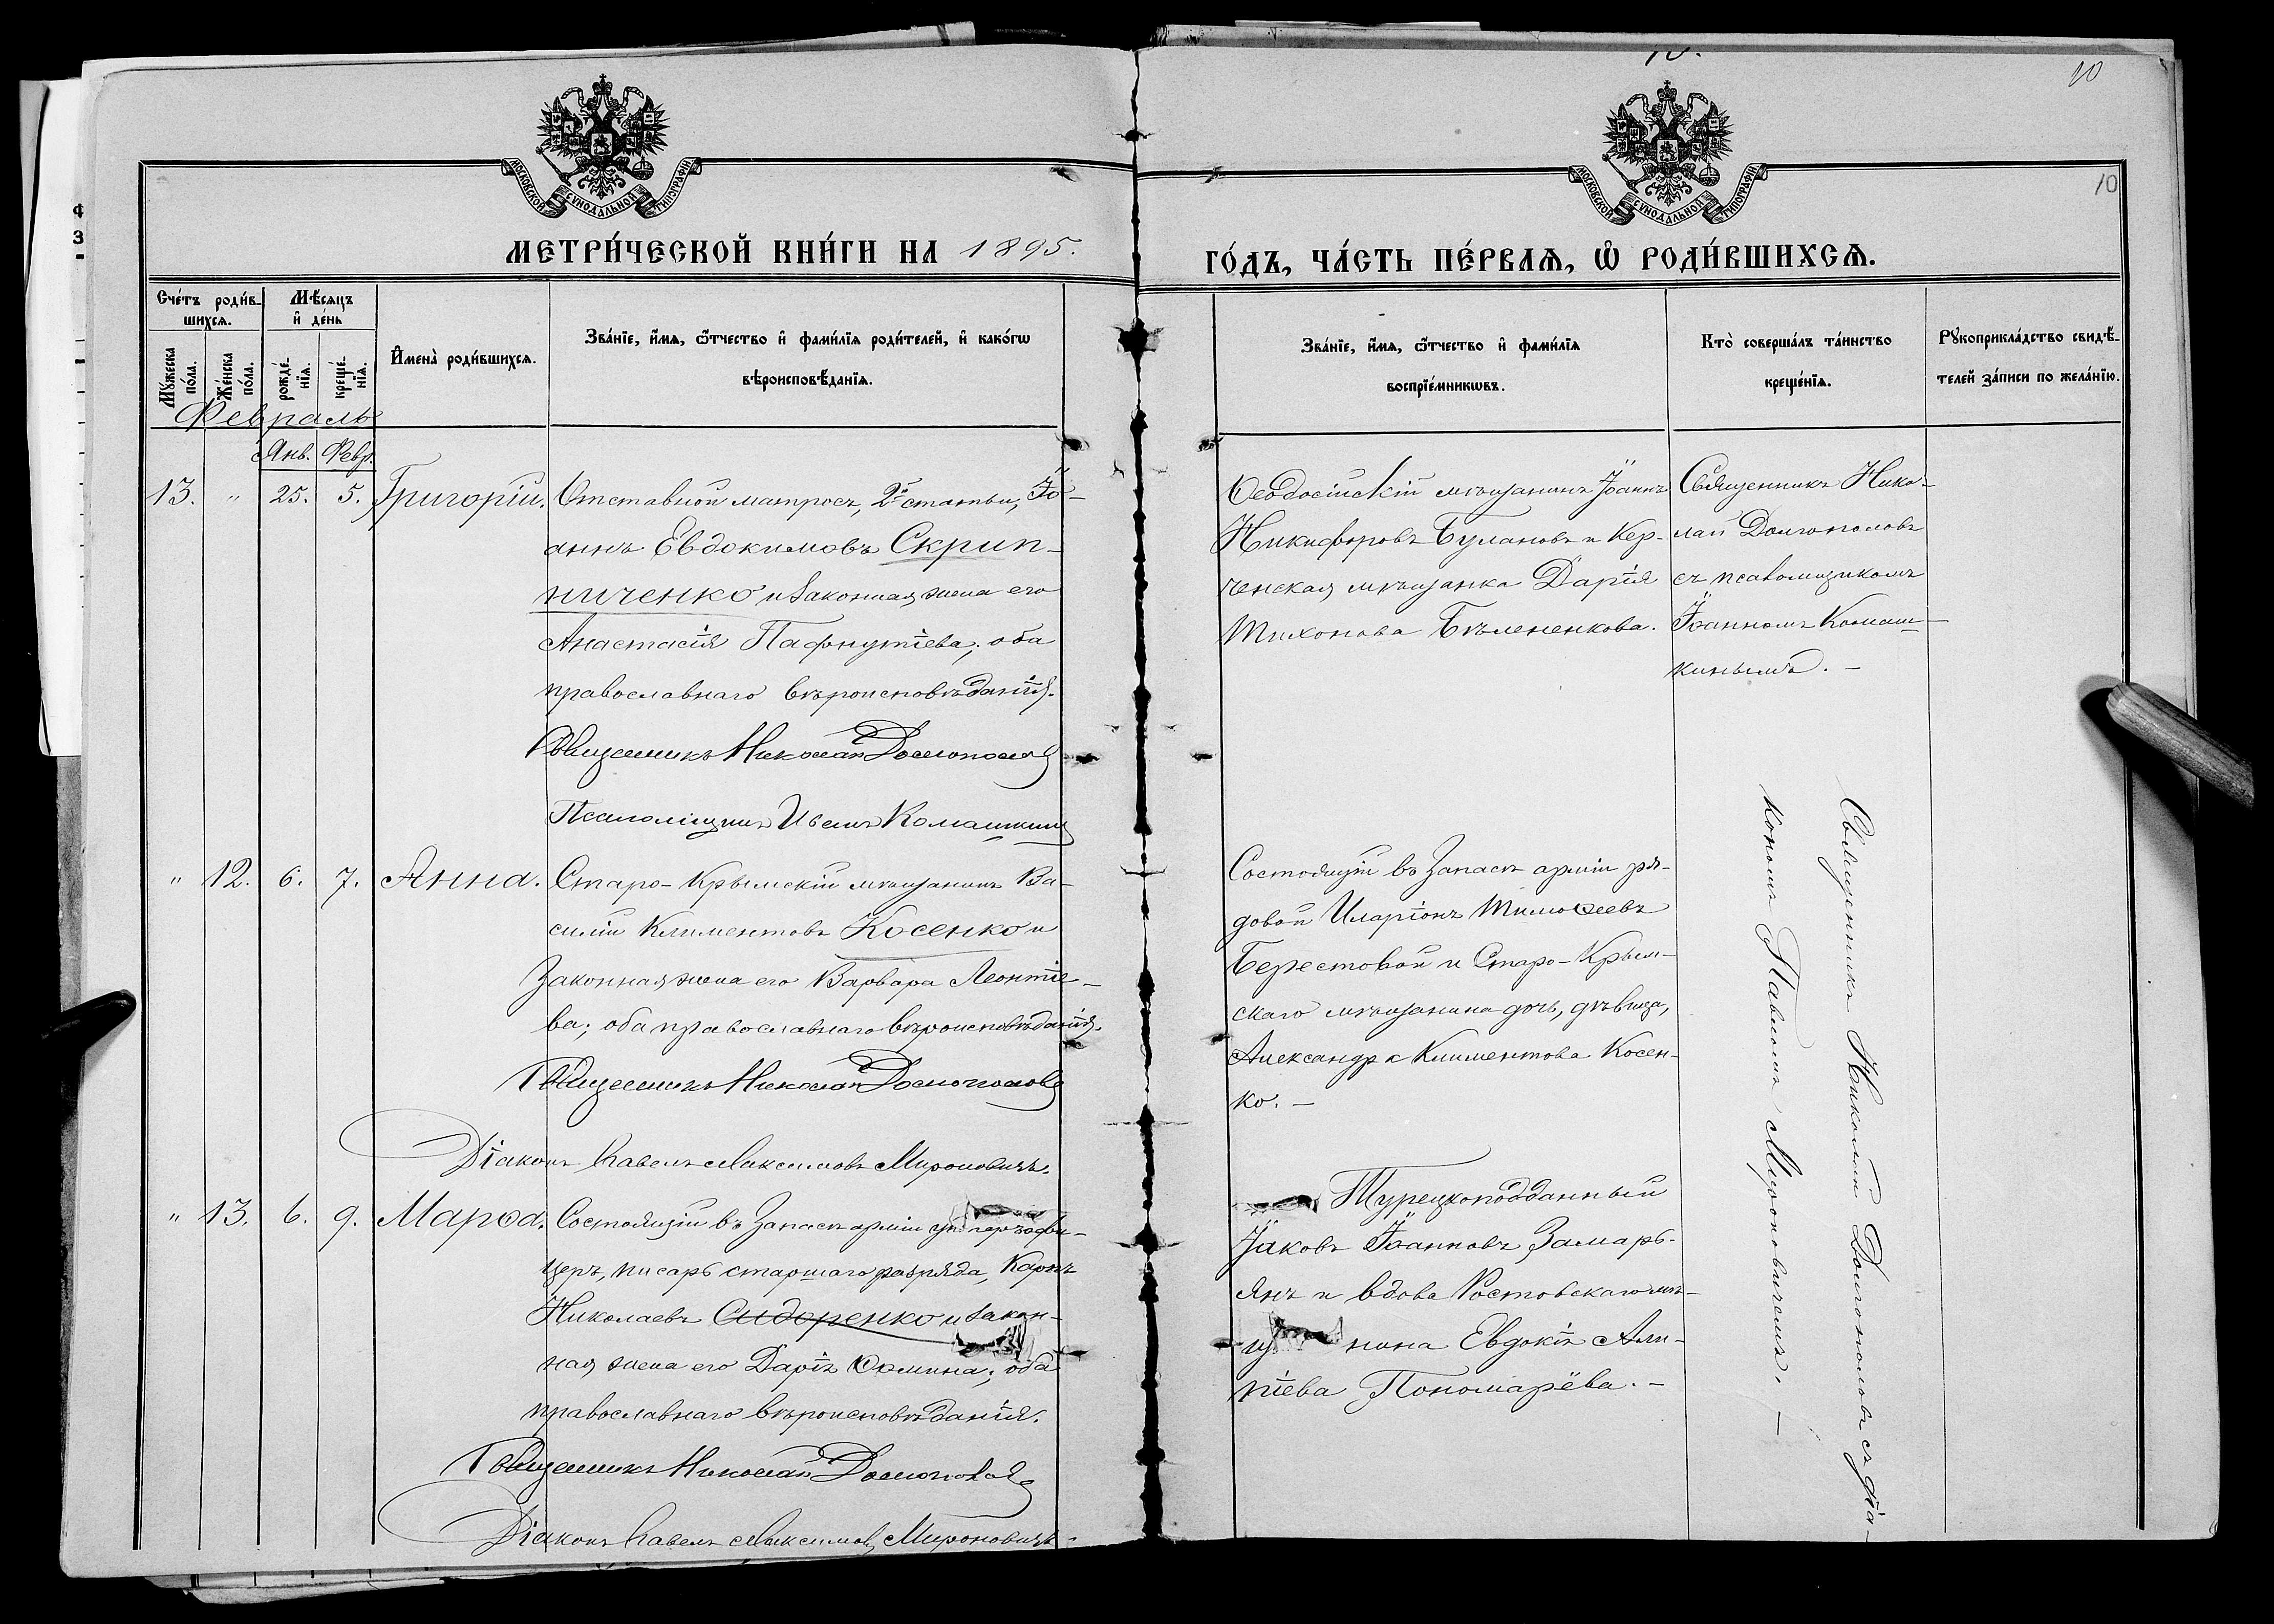 10.
10
10
МОСКОВСКОЙ СѴНОДАЛЬНОЙ ТИПОГРАФІИ
МОСКОВСКОЙ СѴНОДАЛЬНОЙ ТИПОГРАФІИ
МЕТРИ́ЧЕСКОЙ КНИ́ГИ НА 1895.
ГО́ДЪ, ЧА́СТЬ ПЕ́РВАѦ, Ѡ҆ РОДИ́ВШИХСѦ.
Сче́тъ роди́в-
шихсѧ.
Мѣ́сѧцъ
и҆ де́нь
Мꙋ́жеска
по́ла.
Же́нска
по́ла.
рожде́-
нїѧ.
креще́-
нїѧ.
И҆мена̀ роди́вшихсѧ.
Зва́нїе, и҆́мѧ, ѻ҆́тчество и҆ фами́лїѧ роди́телей, и҆ како́гѡ
вѣроисповѣ́данїѧ.
Зва́нїе, и҆́мѧ, ѻ҆́тчество и҆ фами́лїѧ
воспрїе́мникѡвъ.
Кто̀ соверша́лъ та́инство
креще́нїѧ.
Рꙋкоприкла́дство свидѣ́-
телей за́писи по жела́нїю.
Февраль
Янв. Февр.
13. " 25. 5. Григорій. Отставной матросъ, 2й статьи, Іо-
аннъ Евдокимовъ Скрип-
ниченко и законная жена его
Анастасія Пафнутіева; оба
православнаго вѣроисповѣданія.
Священникъ Николай Долгополовъ
Псаломщикъ Иванъ Комашкинъ
Ѳеодосійскій мѣщанинъ Іоаннъ
Никифоровъ Булановъ и Кер-
ченская мѣщанка Дарія
Тихонова Бѣлененкова.
Священникъ Нико-
лай Долгополовъ
съ псаломщикомъ
Іоанномъ Комаш-
кинымъ. —
" 12. 6. 7. Анна. Старо-Крымскій мѣщанинъ Ва-
силій Климентовъ Косенко и
законная жена его Варвара Леонтіе-
ва; оба православнаго вѣроисповѣданія.
Священникъ Николай Долгополовъ
Діаконъ Павелъ Максимовъ Мироновичъ.
Состоящій въ запасѣ арміи ря-
довой Иларіонъ Тимоѳеевъ
Берестовой и Старо-Крым-
скаго мѣщанина дочь, дѣвица,
Александра Климентова Косен-
ко. —
Священникъ Николай Долгополовъ съ діа-
кономъ Павломъ Мироновичемъ. —
" 13. 6. 9. Марѳа. Состоящій въ запасѣ арміи унтеръ-офи-
церъ, писарь старшаго разряда, Карпъ
Николаевъ Сидоренко и закон-
ная жена его Дарія Ѳомина; оба
православнаго вѣроисповѣданія.
Священникъ Николай Долгополовъ
Діаконъ Павелъ Максимовъ Мироновичъ.
Турецкоподданный
Іаковъ Іоанновъ Замарь-
янъ и вдова Ростовскаго мѣ-
щ нина Евдокія Али-
піева Пономарёва. —